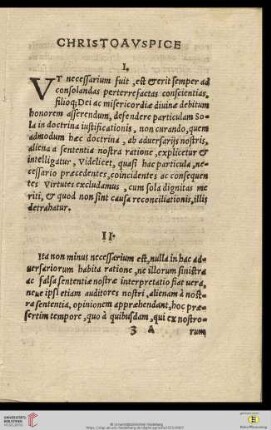 CHRISTO AVSPICE
I.
VT necessarium fuit, est & erit semper ad
consolandas perterrefactas conscientias,
filioq; Dei ac misericordiæ diuinæ debitum
honorem asserendum, defendere particulam So-
la in doctrina iustificationis, non curando, quem
admodum hæc doctrina, ab aduersarijs nostris,
aliena a sententia nostra ratione, explicetur &
intelligatur, Videlicet, quasi hac particula, ne-
cessario præcedentes, coincidentes ac consequen
tes Virtutes excludamus, cum sola dignitas me
riti, & quod non sint causa reconciliationis, illis
detrahatur.
II.
Ita non minus necessarium est, nulla in hac ad
uersariorum habita ratione, ne illorum sinistra
ac falsa sententiæ nostræ interpretatio fiat vera,
neue ipsi etiam auditores nostri, alienam à nost-
ra sententia, opinionem appræhendant, hoc præ-
sertim tempore, quo à quibusdam, qui ex nostro-
3 A rum